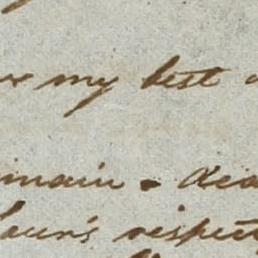 my best
main - dea
your's respect